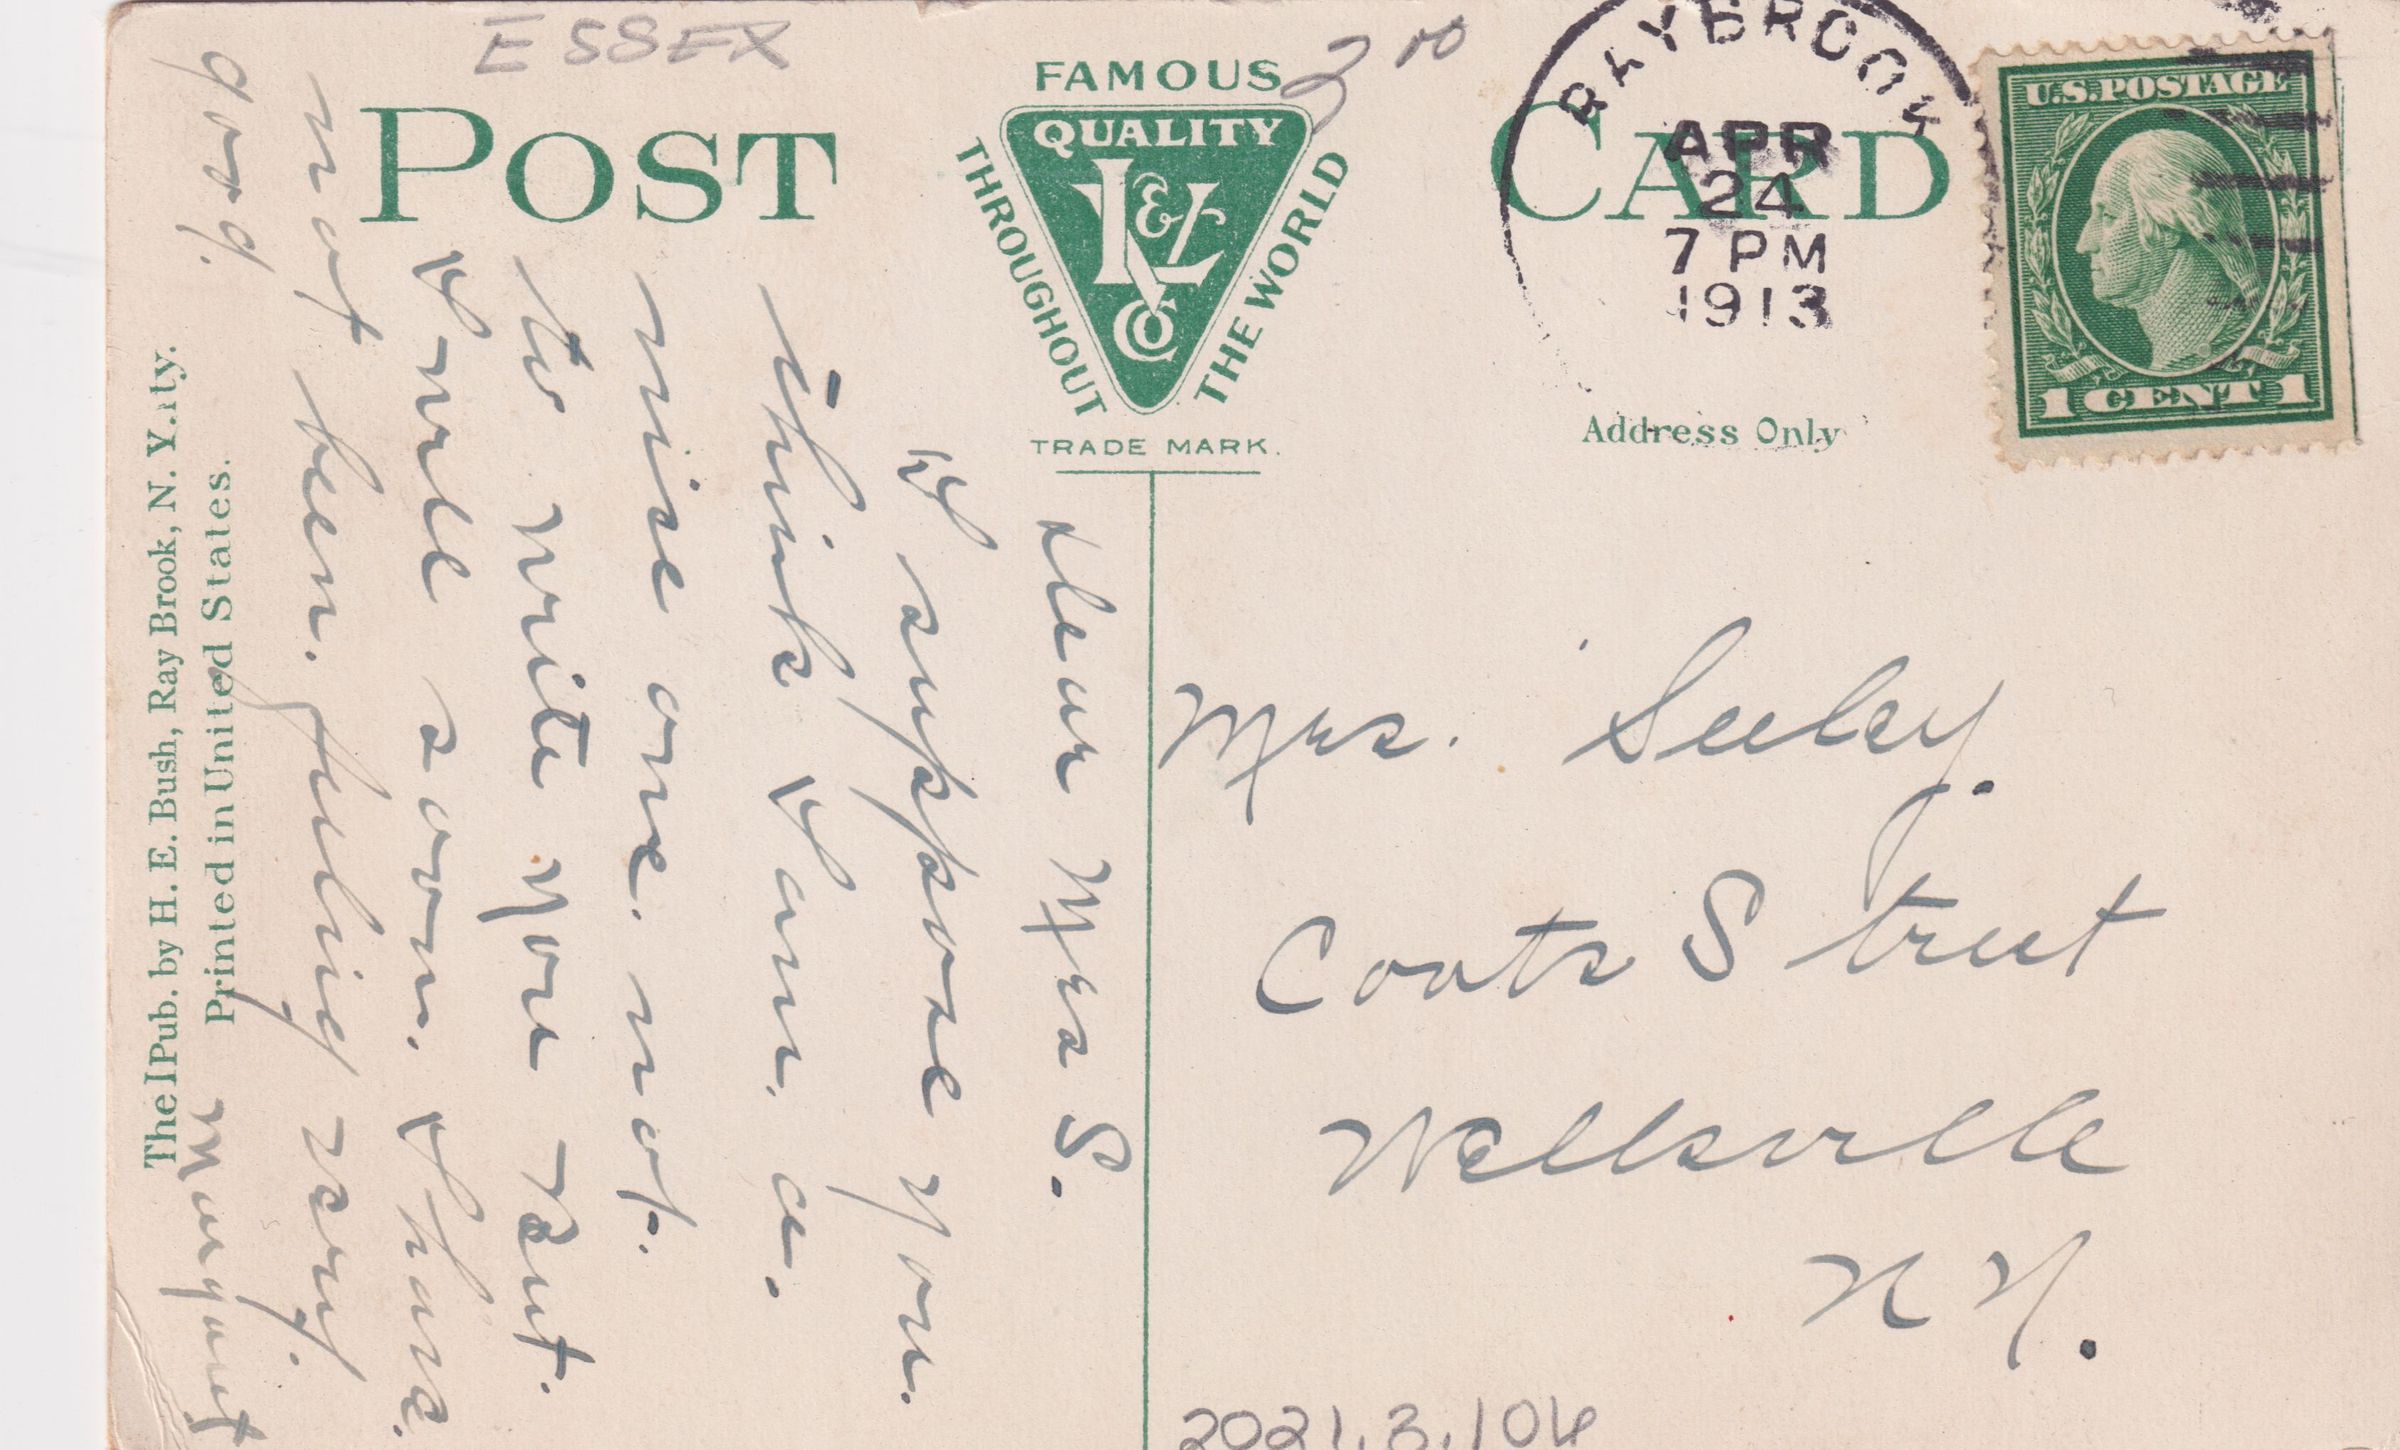 ESSEX
2 00
POST CARD
FAMOUS
QUALITY
THROUGHOUT
THE WORLD
V & Co
TRADE MARK.
RAYBROOK
APR
24
7 PM
1913
U.S. POSTAGE
1 CENT 1
Address Only
Mrs. Seeley.
Coats Street
Wellsville
N Y.
Dear Mrs S.
I suppose you
think I am a.
nice one. not.
to write you but.
I will soon. I have.
not been. feeling very.
good.
Margaret
The IPub. by H. E. Bush, Ray Brook, N. Y.ity.
Printed in United States.
2021.3.104